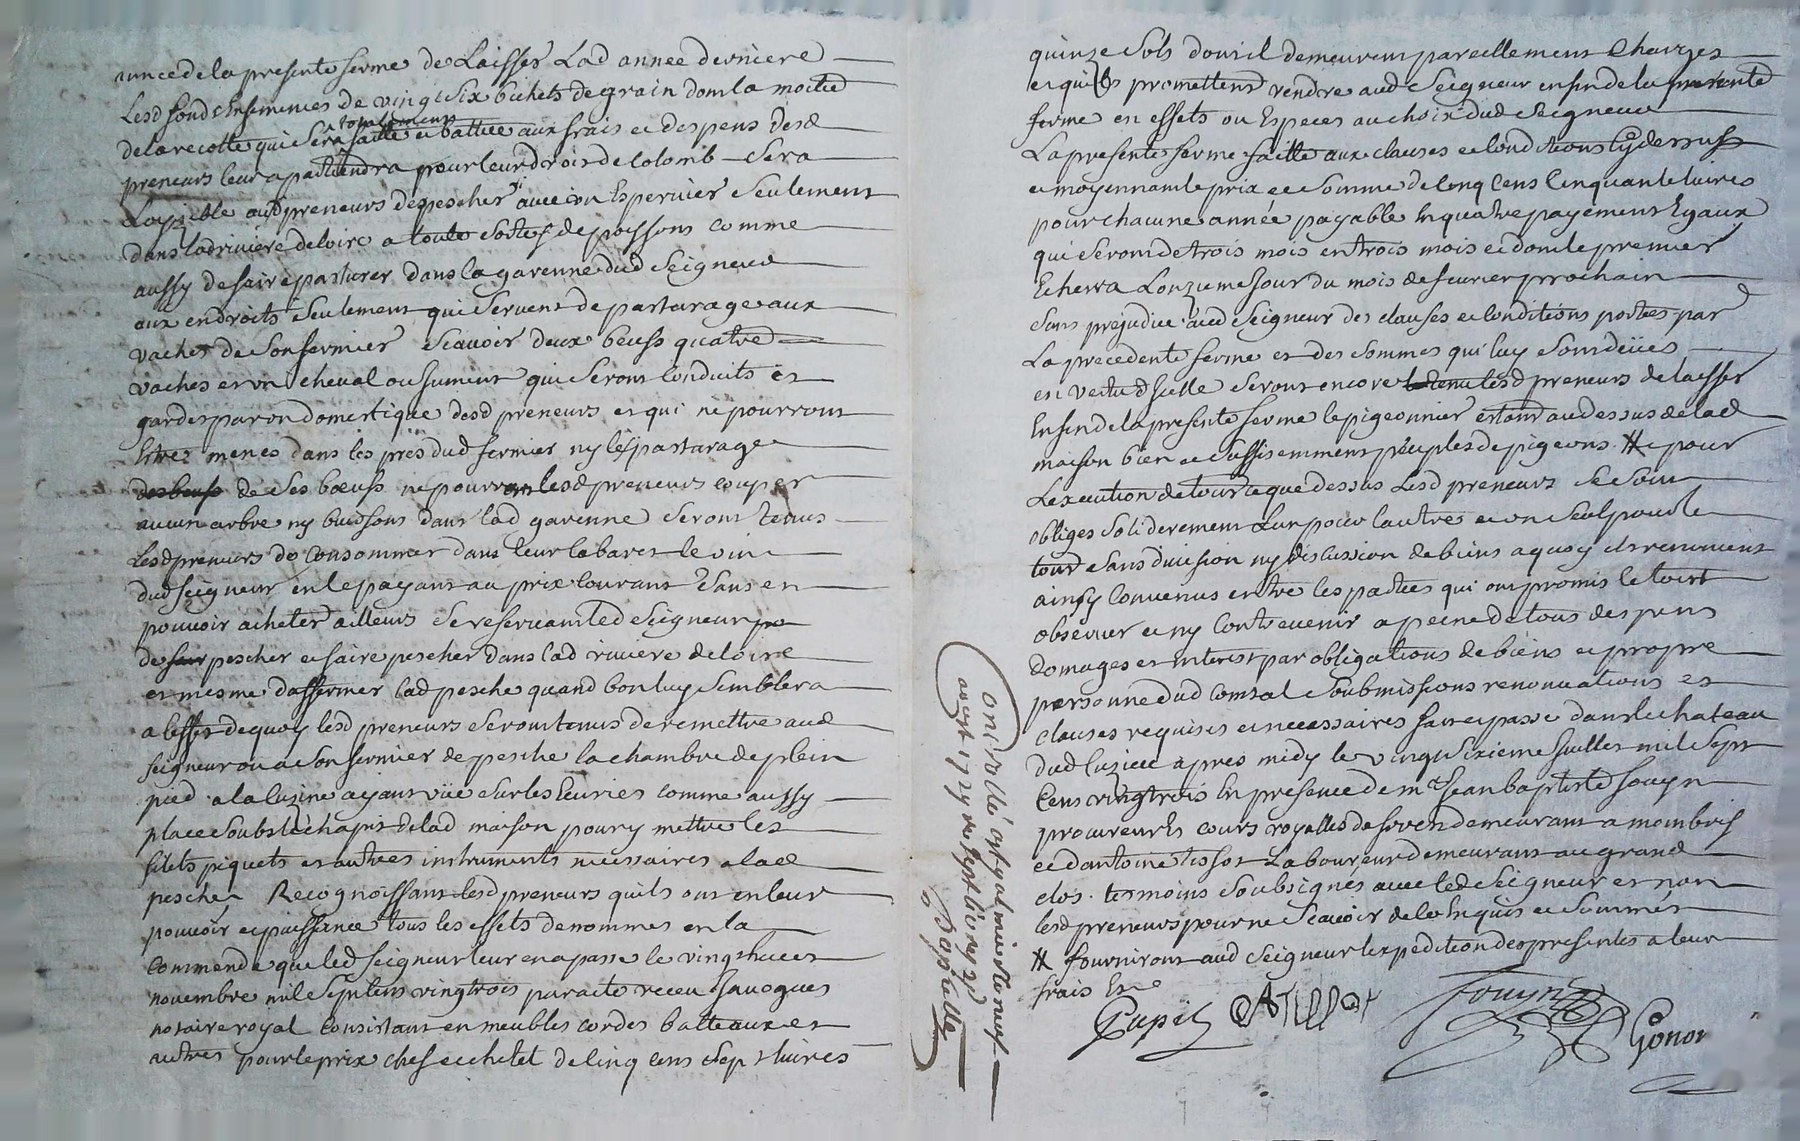 année de la presente ferme de Laisser Lad année derniere
Lesd fonds Ensemences de vingt six bichets de grain dont la moitié
totalement
de la recolte qui sera faitte et battue aux frais et despens desd
preneurs leur apartiendra pour leur droit de Colomb Sera
Loyzible ausd preneurs de pescher avec un Espervier Seulement
dans lad riviere de loire a toute Sortes de poissons comme
aussy de faire pasturer dans la garenne dud Seigneur
aux endroits Seulement qui Servent de pasturage aux
vaches de Son fermier Scavoir deux beufs quatre
vaches et un cheval ou Jument qui Seront Conduits et
gardes par un domestique desd preneurs et qui ne pourront
Estre menes dans les pres dud fermier ny les pasturage
des beufs de Ses boeufs ne pourront lesd preneurs couper
aucun arbre ny buissons dans lad garenne Seront tenus
Lesd preneurs de Consommer dans leur Cabaret le vin
dud seigneur en le payant au prix Courant Sans en
pouvoir acheter ailleurs Se reservant led Seigneur
de pescher et faire pescher dans lad riviere de loire
et mesme d'affermer lad pesche quand bon luy Semblera
a l'effet de quoy lesd preneurs Seront tenus de remettre aud
Seigneur ou a Son fermier de pesche la chambre de plein
pied a la Cuzine ayant vüe Sur les Ecuries comme aussy
place Soubs le chapit de lad maison pour y mettre les
filets piquets et autres instruments necessaires a lad
pesche Recognoissant lesd preneurs quils ont en leur
pouvoir et puissance tous les effets denommes en la
Commande que led Seigneur leur en a passe le vingt huict
novembre mil Sept Cens vingt trois par acte receu Jauogues
notaire royal Consistant en meubles cordes batteaux et
autres pour le prix chef et chetel de Cinq cens Sept Livres
quinze Sols dont il demeurent pareillement Charges
et quils promettent rendre aud Seigneur en fin de la presente
ferme en effets ou Especes au choix dud Seigneur
La presente ferme faitte aux clauses et Conditions cy dessus
et moyennant le prix et Somme de Cinq Cens Cinquante Livres
pour chacune année payable En quatre payement Egaux
qui Seront de trois mois en trois mois et dont le premier
Echerra L'onzieme Jour du mois de fevrier prochain
Sans prejudice aud Seigneur des clauses et Conditions portées par
La precedente ferme et des Sommes qui luy Sont deües
en vertu d'Icelle Seront encore tenu lesd preneurs de laisser
En fin de la presente ferme le pigeonnier estant au dessus de lad
maison bien et Suffisemment peuples de pigeons # et pour
L'execution de tout ce que dessus Lesd preneurs Se Sont
obliges Soliderement L'un pour l'autre et un Seul pour le
tout Sans division ny discussion de biens a quoy ils renoncent
ainsy Convenus entre les parties qui ont promis le tout
observer et ny Contrevenir a peine de tous despens
domages et interest par obligations de biens et propre
personne dud Comsal Soubmissions renonciations et
clauses requises et necessaires fait et passe dans le chateau
dud Cuzieu apres midy le vingt Sixieme Juillet mil Sept
Cens vingt trois En presence de Mre Jean baptiste Jouyn
procureur Es cours royalles de forez demeurant a mombris
et d'antoine tissot Laboureur demeurant au grand
clos tesmoins Soubsignés avec led Seigneur et non
lesd preneurs pour ne Scavoir de ce Enquis et Sommés
# fourniront aud Seigneur l'expedition des presentes a leur
frais
Pupil A Tissot Jouyn Gonon